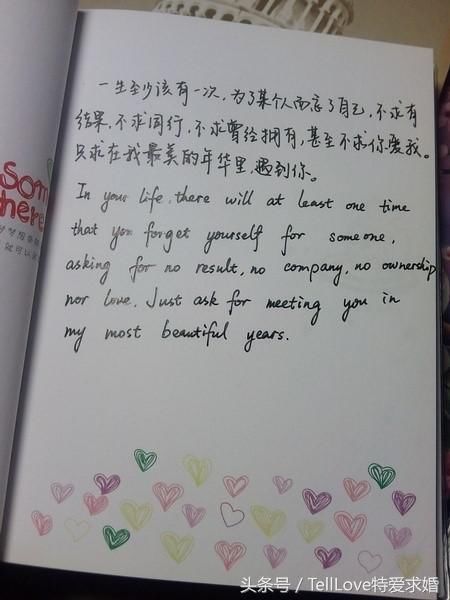 一生至少该有一次，为了某个人而忘了自己，不求有
结果，不求同行，不求曾经拥有，甚至不求你爱我。
只求在我最美的年华里，遇到你。
In your life, there will at least one time
that you forget yourself for someone,
asking for no result, no company, no ownership
nor love. Just ask for meeting you in
my most beautiful years.
som
here
就可以
头条号 / TellLove特爱求婚